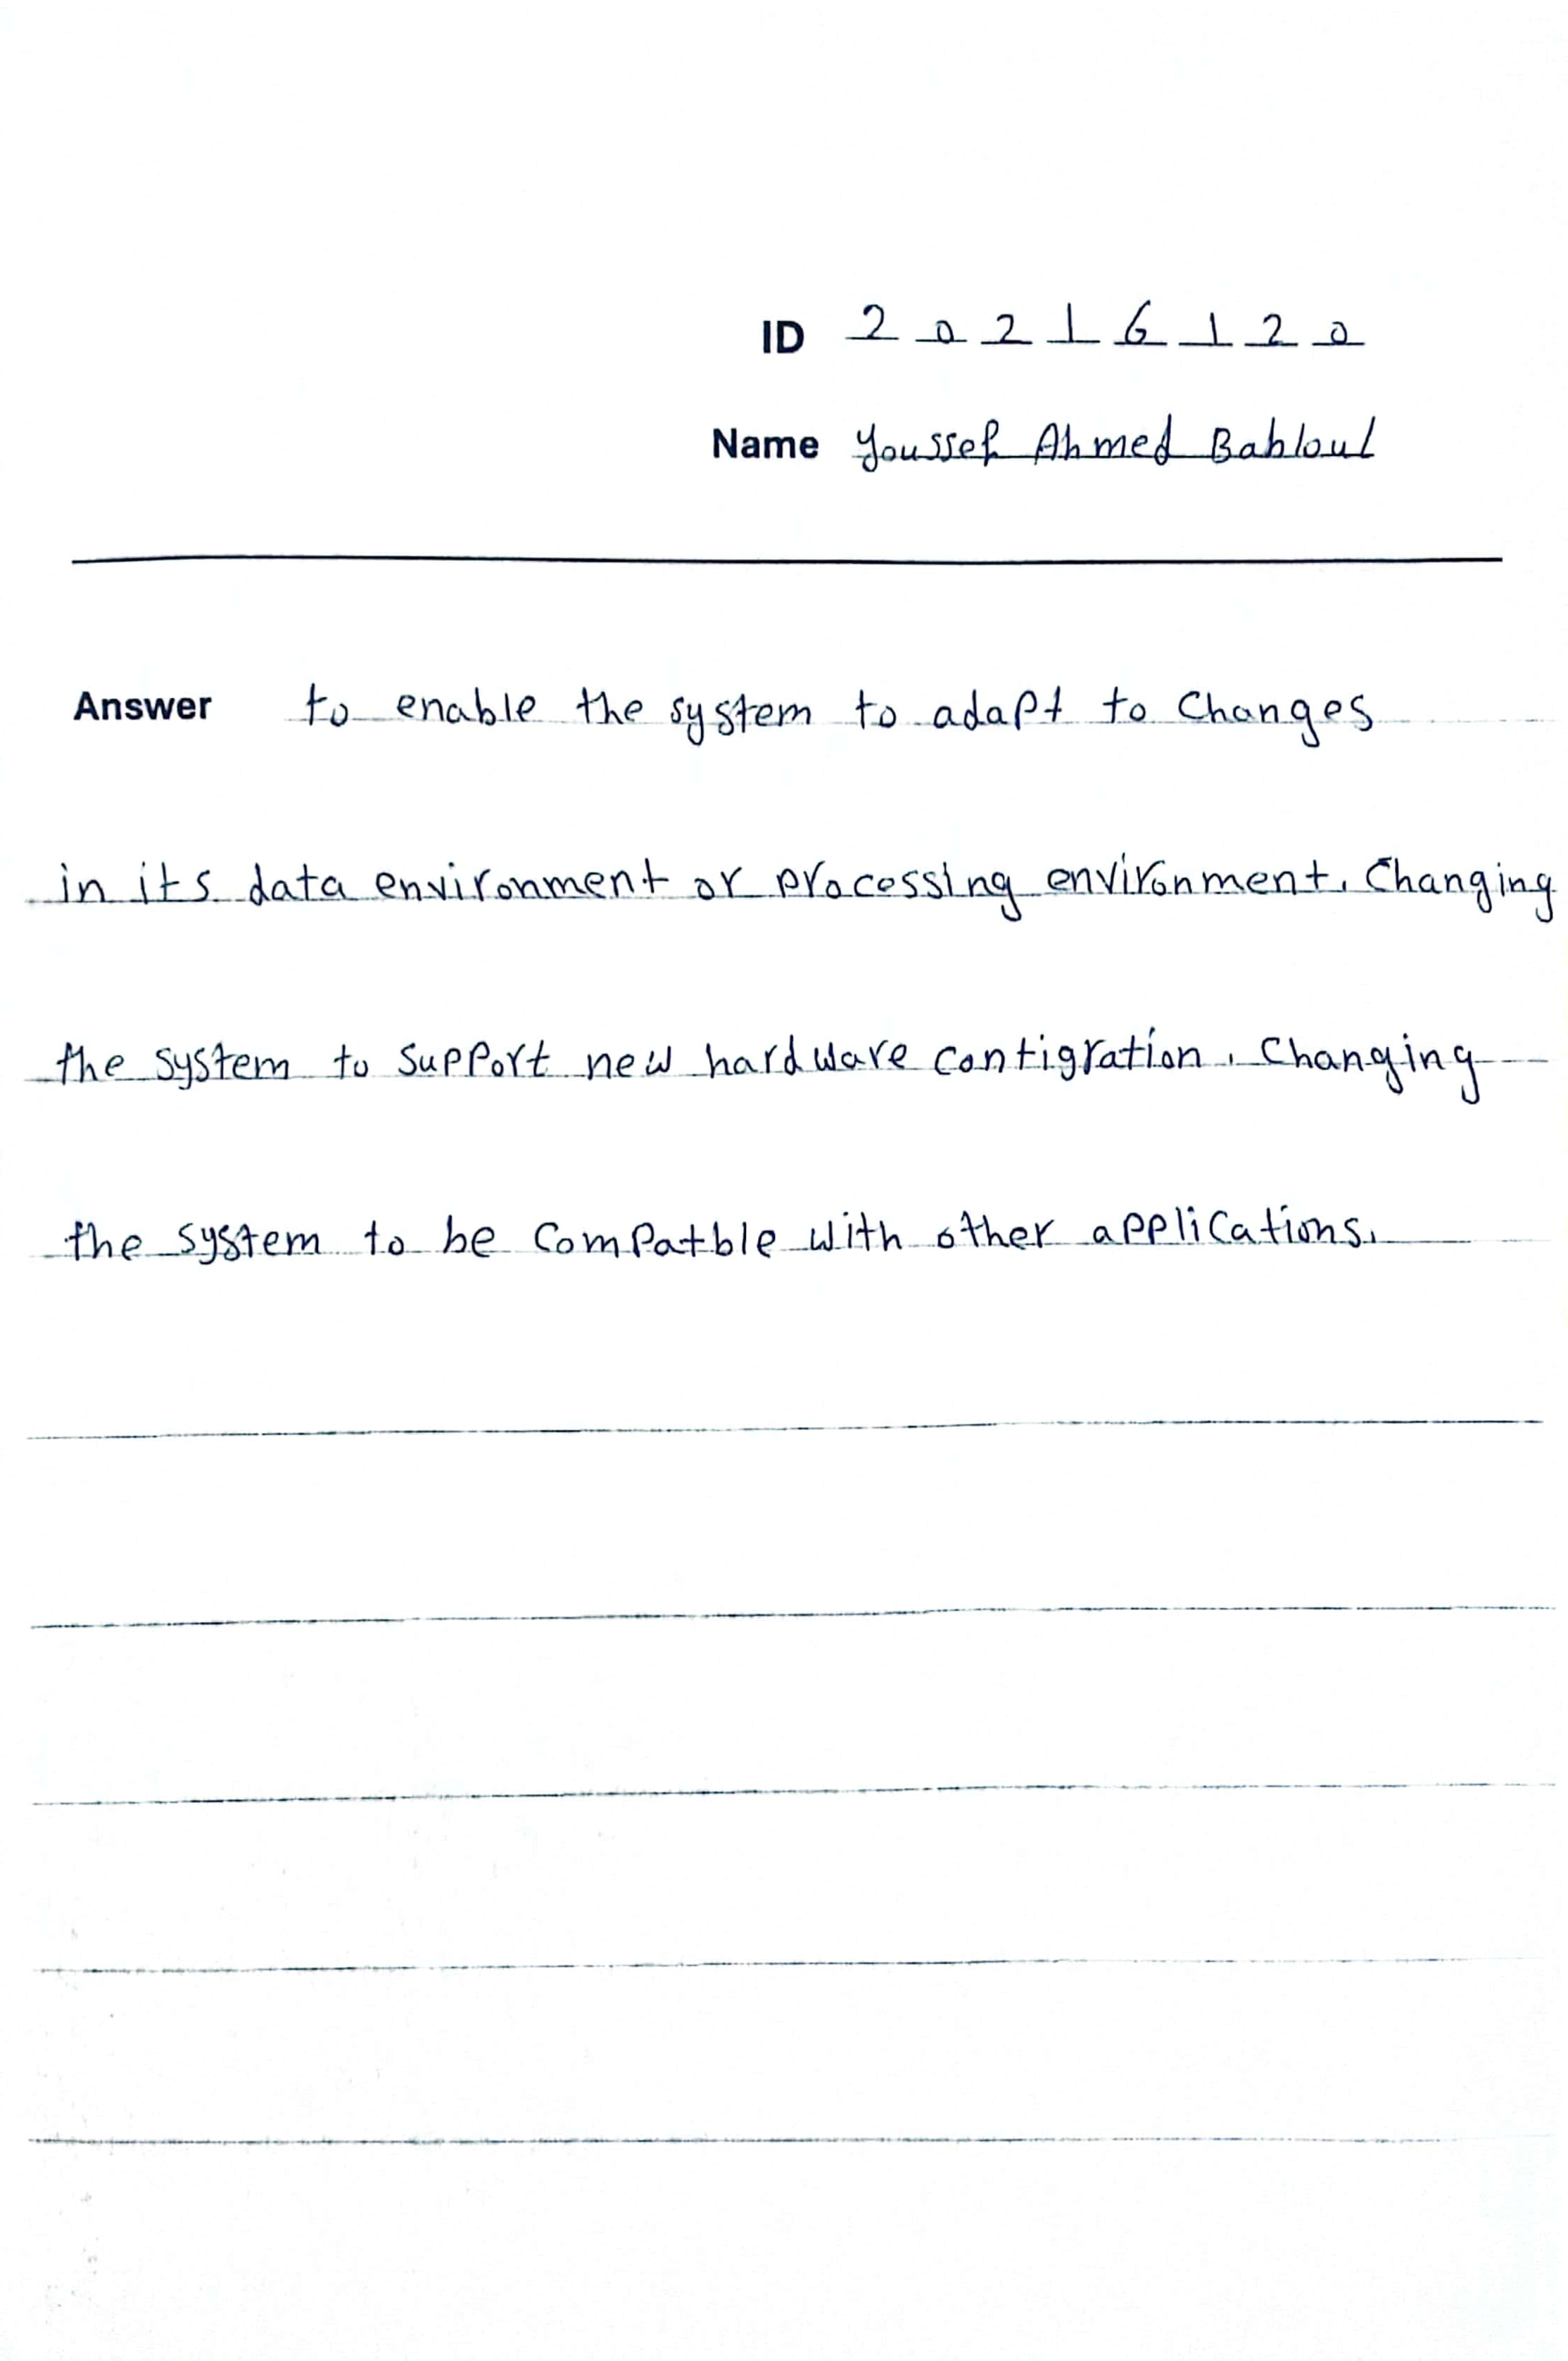 ID 20216120
Name Youssef Ahmed Bahloul
Answer to enable the system to adapt to Changes
in its data environment or processing environment. Changing
the system to support new hardware contigration. Changing
the system to be Compatble with other applications.